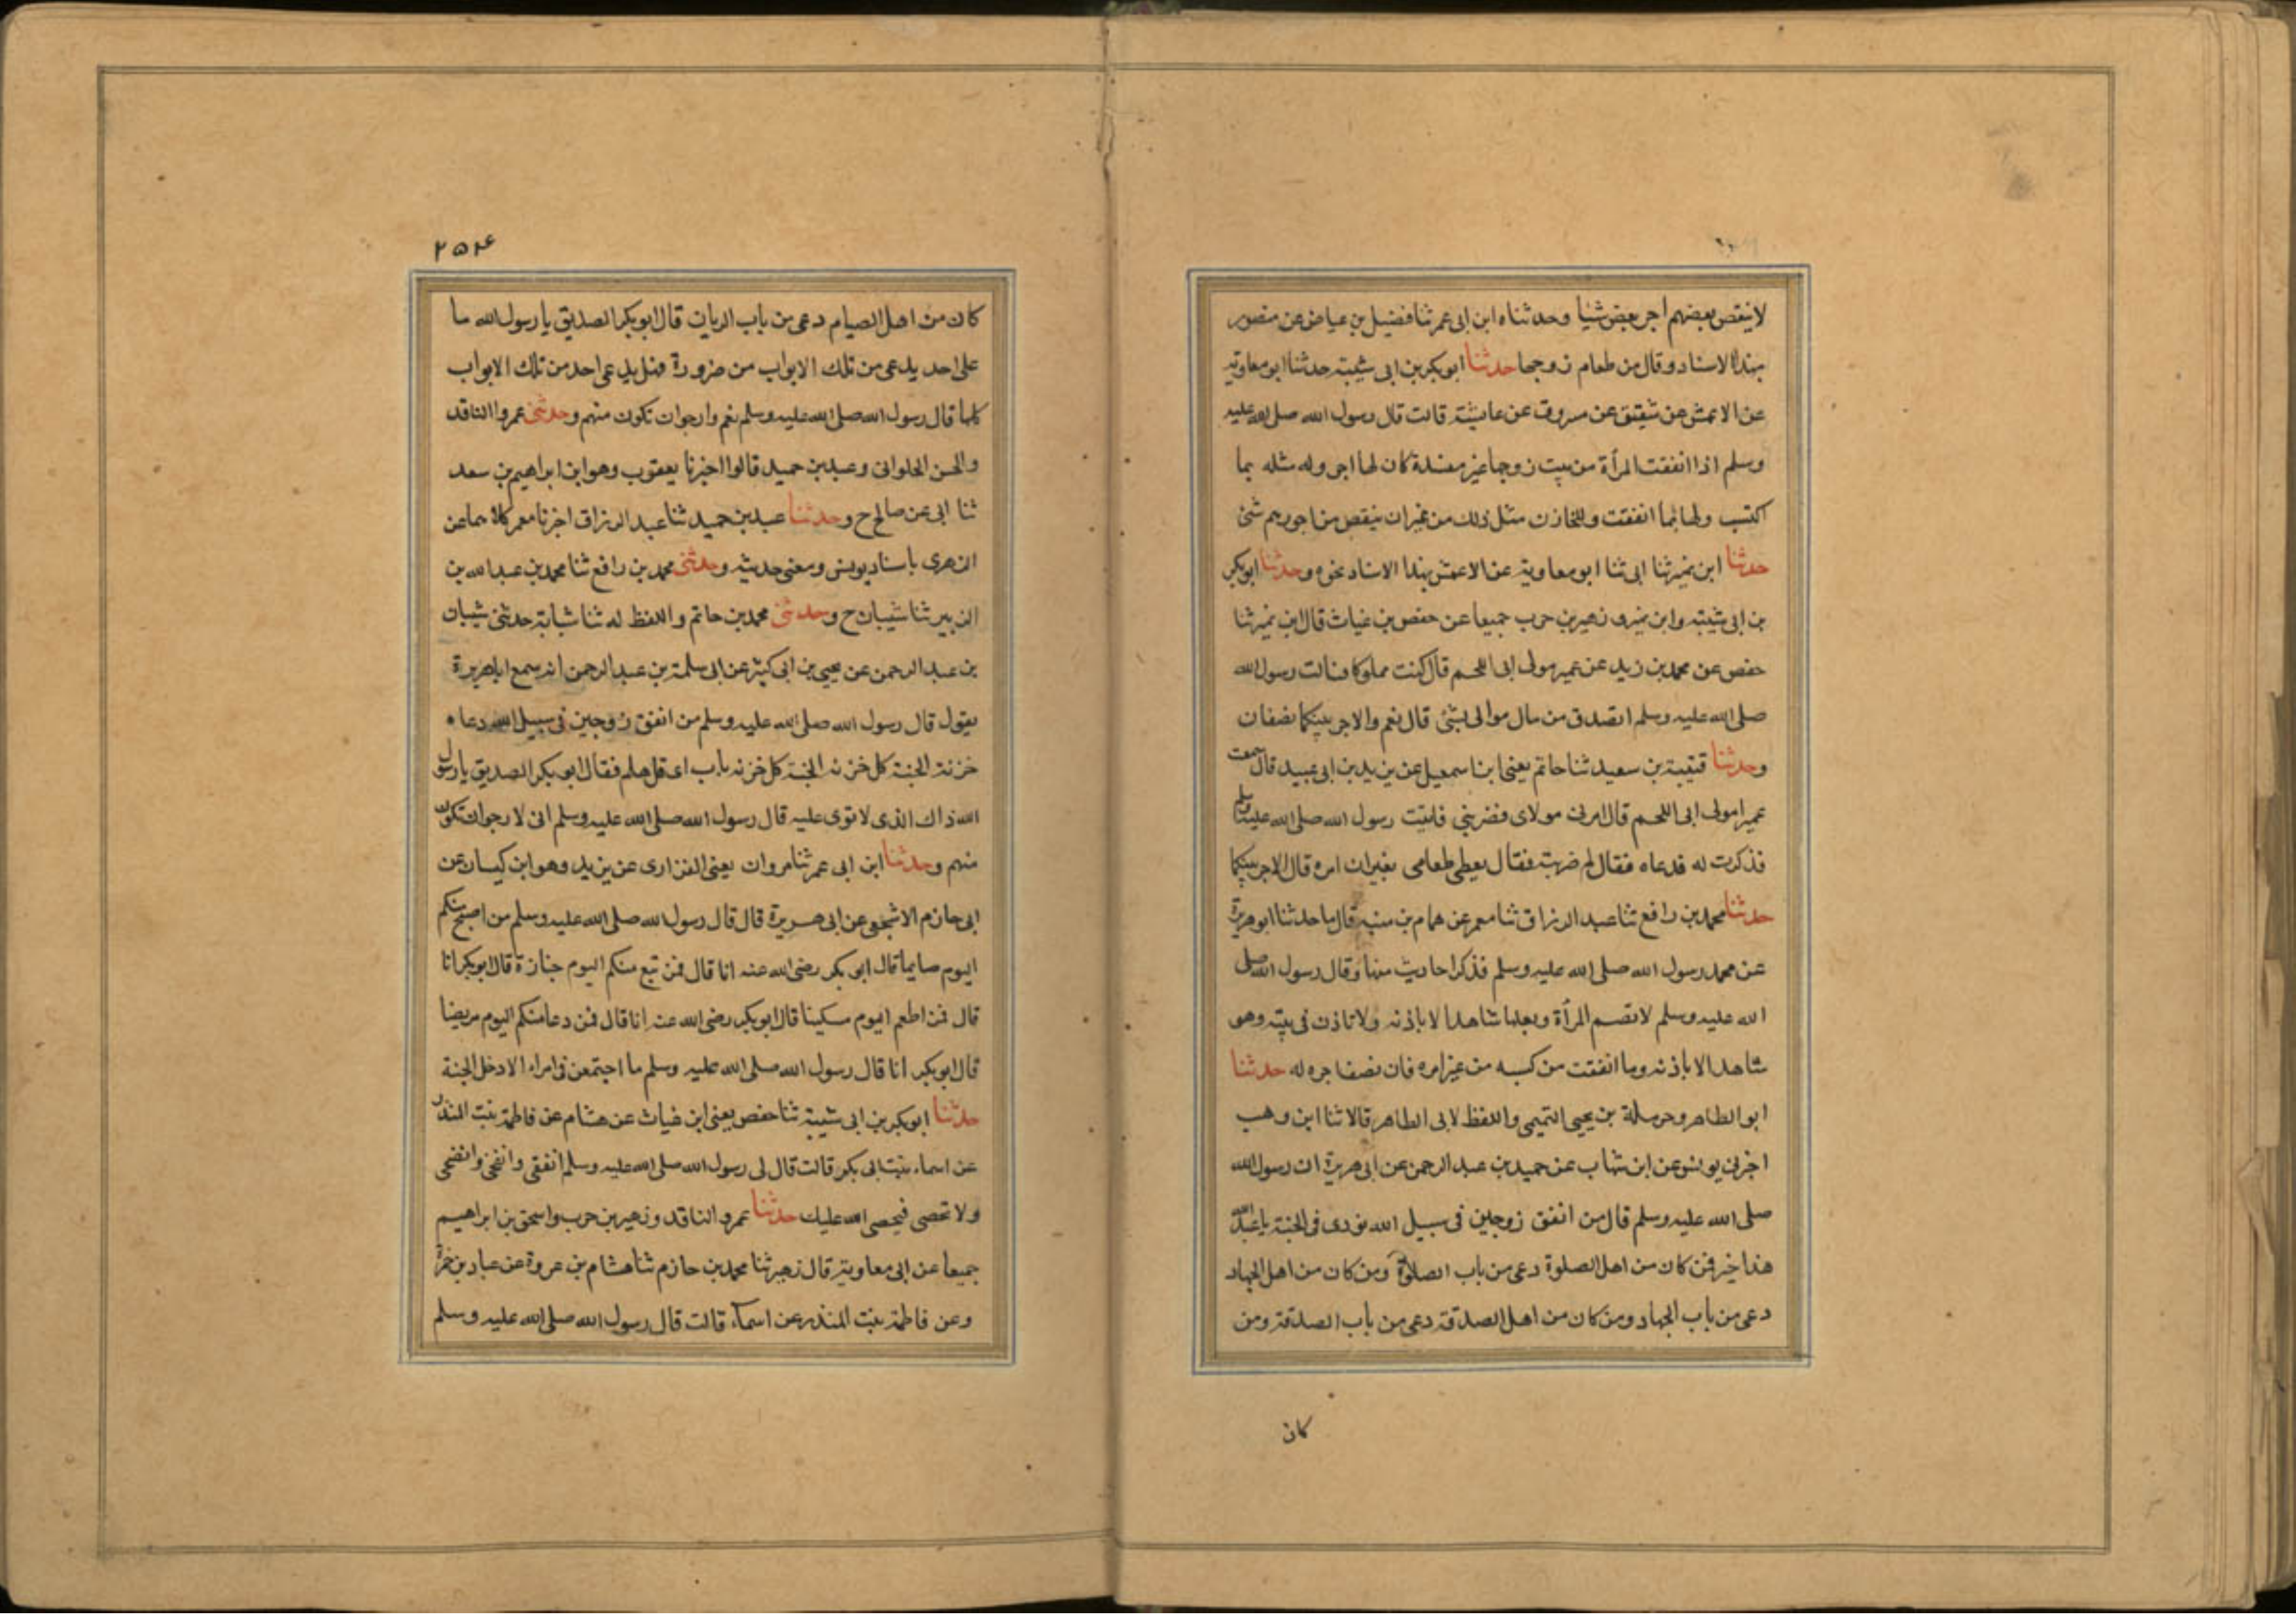 لا ينقص بعضهم اجر بعض شيا وحدثناه ابن ابى عمر ثنا فضيل بن عياض عن منصور
بهذا الاسناد وقال من طعام زوجها حدثنا ابو بكر بن ابى شيبة حدثنا ابو معاوية
عن الاعمش عن شقيق عن مسروق عن عايشة قالت قال رسول الله صلى الله عليه
وسلم اذا انفقت المرأة من بيت زوجها غير مفسدة كان لها اجر وله مثله بما
اكتسب ولها بما انفقت وللخازن مثل ذلك من غير ان ينقص من اجورهم شئ
حدثنا ابن نمير ثنا ابى ثنا ابو معاوية عن الاعمش بهذا الاسناد نحوه وحدثنا ابو بكر
بن ابى شيبه وابن نمير وزهير بن حرب جميعا عن حفص بن غياث قال ابن نمير ثنا
حفص عن محمد بن زيد عن عمير مولى ابى اللحم قال كنت مملوكا فسالت رسول الله
صلى الله عليه وسلم اتصدق من مال موالى بشئ قال نعم والاجر بينكما نصفان
وحدثنا قتيبة بن سعيد ثنا حاتم يعنى ابن اسمعيل عن يزيد بن ابى عبيد قال سمعت
عميرا مولى ابى اللحم قال امرنى مولاى فضربنى فاتيت رسول الله صلى الله عليه وسلم
فذكرت له فدعاه فقال لم ضربته فقال يعطى طعامى بغير ان امره قال الاجر بينكما
حدثنا محمد بن رافع ثنا عبد الرزاق ثنا معمر عن همام بن منبه قال ما حدثنا ابو هريرة
عن محمد رسول الله صلى الله عليه وسلم فذكر احاديث منها وقال رسول الله صلى
الله عليه وسلم لا تصم المرأة وبعلها شاهد الا باذنه ولا تاذن فى بيته وهو
شاهد الا باذنه وما انفقت من كسبه من غير امره فان نصف اجره له حدثنا
ابو الطاهر وحرملة بن يحيى التميمى واللفظ لابى الطاهر قالا ثنا ابن وهب
اخبرنى يونس عن ابن شهاب عن حميد بن عبد الرحمن عن ابى هريرة ان رسول الله
صلى الله عليه وسلم قال من انفق زوجين فى سبيل الله نودى فى الجنة يا عبد الله
هذا خير فمن كان من اهل الصلوة دعى من باب الصلاة ومن كان من اهل الجهاد
دعى من باب الجهاد ومن كان من اهل الصدقة دعى من باب الصدقة ومن
كان
٢٥٤
كان من اهل الصيام دعى من باب الريان قال ابو بكر الصديق يا رسول الله ما
على احد يدعى من تلك الابواب من ضرورة فهل يدعى احد من تلك الابواب
كلها قال رسول الله صلى الله عليه وسلم نعم وارجو ان تكون منهم وحدثنى عمرو الناقد
والحسن الحلوانى وعبد بن حميد قالوا اخبرنا يعقوب وهو ابن ابراهيم بن سعد
ثنا ابى عن صالح ح وحدثنا عبد بن حميد ثنا عبد الرزاق اخبرنا معمر كلاهما عن
الزهرى باسناد يونس ومعنى حديثه وحدثنى محمد بن رافع ثنا محمد بن عبد الله بن
الزبير ثنا شيبان ح وحدثنى محمد بن حاتم واللفظ له ثنا شبابة حدثنى شيبان
بن عبد الرحمن عن يحيى بن ابى كثير عن ابى سلمة بن عبد الرحمن انه سمع ابا هريرة
يقول قال رسول الله صلى الله عليه وسلم من انفق زوجين فى سبيل الله دعاه
خزنة الجنة كل خزنه الجنة كل خزنه باب اى قل هلم فقال ابو بكر الصديق يا رسول
الله ذاك الذى لا توى عليه قال رسول الله صلى الله عليه وسلم انى لارجو ان تكون
منهم وحدثنا ابن ابى عمر ثنا مروان يعنى الفزارى عن يزيد وهو ابن كيسان عن
ابى حازم الاشجعى عن ابى هريرة قال قال رسول الله صلى الله عليه وسلم من اصبح منكم
اليوم صايما قال ابو بكر رضى الله عنه انا قال فمن تبع منكم اليوم جنازة قال ابو بكر انا
قال فمن اطعم اليوم مسكينا قال ابو بكر رضى الله عنه انا قال فمن دعا منكم اليوم مريضا
قال ابو بكر انا قال رسول الله صلى الله عليه وسلم ما اجتمعن فى امراء الا دخل الجنة
حدثنا ابو بكر بن ابى شيبة ثنا حفص يعنى ابن غياث عن هشام عن فاطمة بنت المنذر
عن اسماء بنت ابى بكر قالت قال لى رسول الله صلى الله عليه وسلم انفقى وانفحى وانضحى
ولا تحصى فيحصى الله عليك حدثنا عمرو الناقد وزهير بن حرب واسحق بن ابراهيم
جميعا عن ابى معاوية قال زهير ثنا محمد بن حازم ثنا هشام بن عروة عن عباد بن حمزة
وعن فاطمة بنت المنذر عن اسماء قالت قال رسول الله صلى الله عليه وسلم